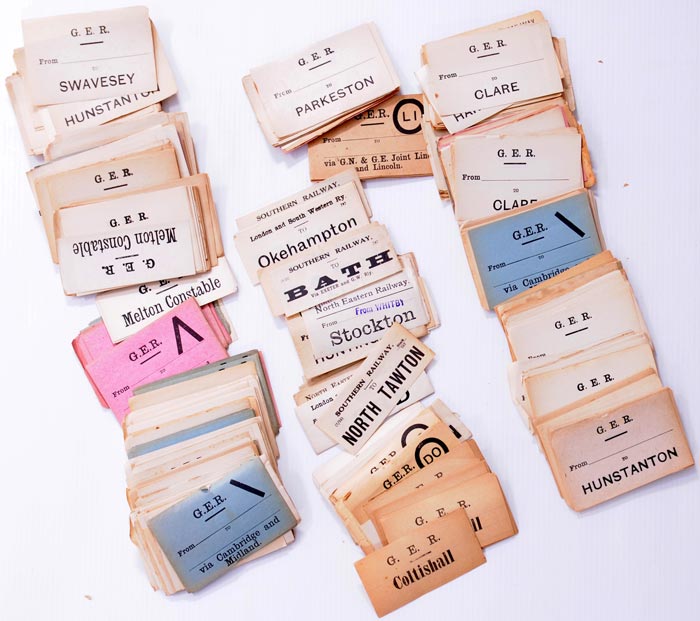 G. E. R.
From
TO
SWAVESEY
HUNSTANTON
G.E.R.
G.E.R.
Melton Constable
G. E. R
G. E. R
Melton Constable
G.E.R.
From
G.E.R.
From
TO
via Cambridge and
Midland.
G. E. R.
From
TO
PARKESTON
G.E.R.
LI
From
TO
via G.N. & G.E. Joint Line
and Lincoln.
SOUTHERN RAILWAY.
London and South Western Ry.
TO
Okehampton
SOUTHERN RAILWAY.
TO
BATH
Via EXETER and G.W. Rly.
North Eastern Railway.
From WHITBY
From
TO
Stockton
NORTH EASTERN
London
SOUTHERN RAILWAY.
TO
NORTH TAWTON
G.E.R.
DO
From
G. E. R.
G. E. R.
Coltishall
G. E. R.
From
TO
CLARE
G. E. R.
From
TO
CLARE
G.E.R.
From
TO
via Cambridge
G. E. R.
From
TO
G. E. R.
G. E. R.
From
TO
HUNSTANTON